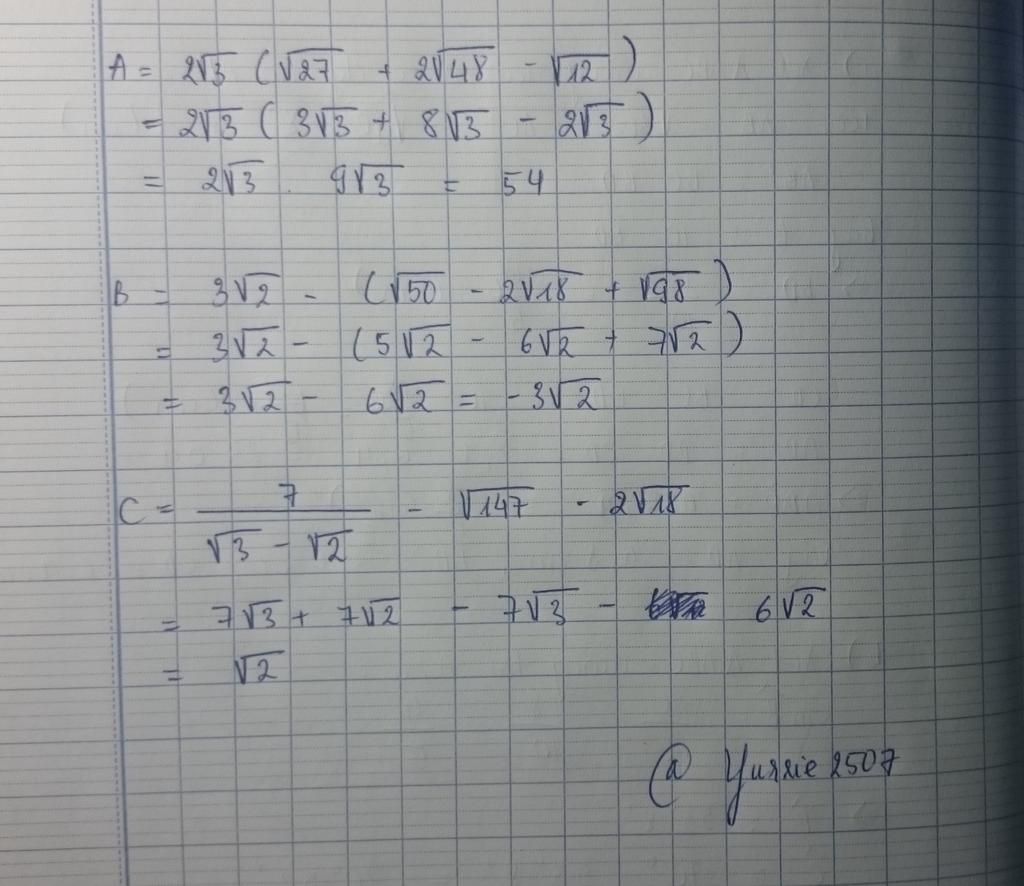 A = 2√3 (√27 + 2√48 - √12)
= 2√3 (3√3 + 8√3 - 2√3)
= 2√3 . 9√3 = 54
B = 3√2 - (√50 - 2√18 + √98)
= 3√2 - (5√2 - 6√2 + 7√2)
= 3√2 - 6√2 = -3√2
C = 7/(√3 - √2) - √147 - 2√18
= 7√3 + 7√2 - 7√3 - 6√2
= √2
@ Yurrie2507